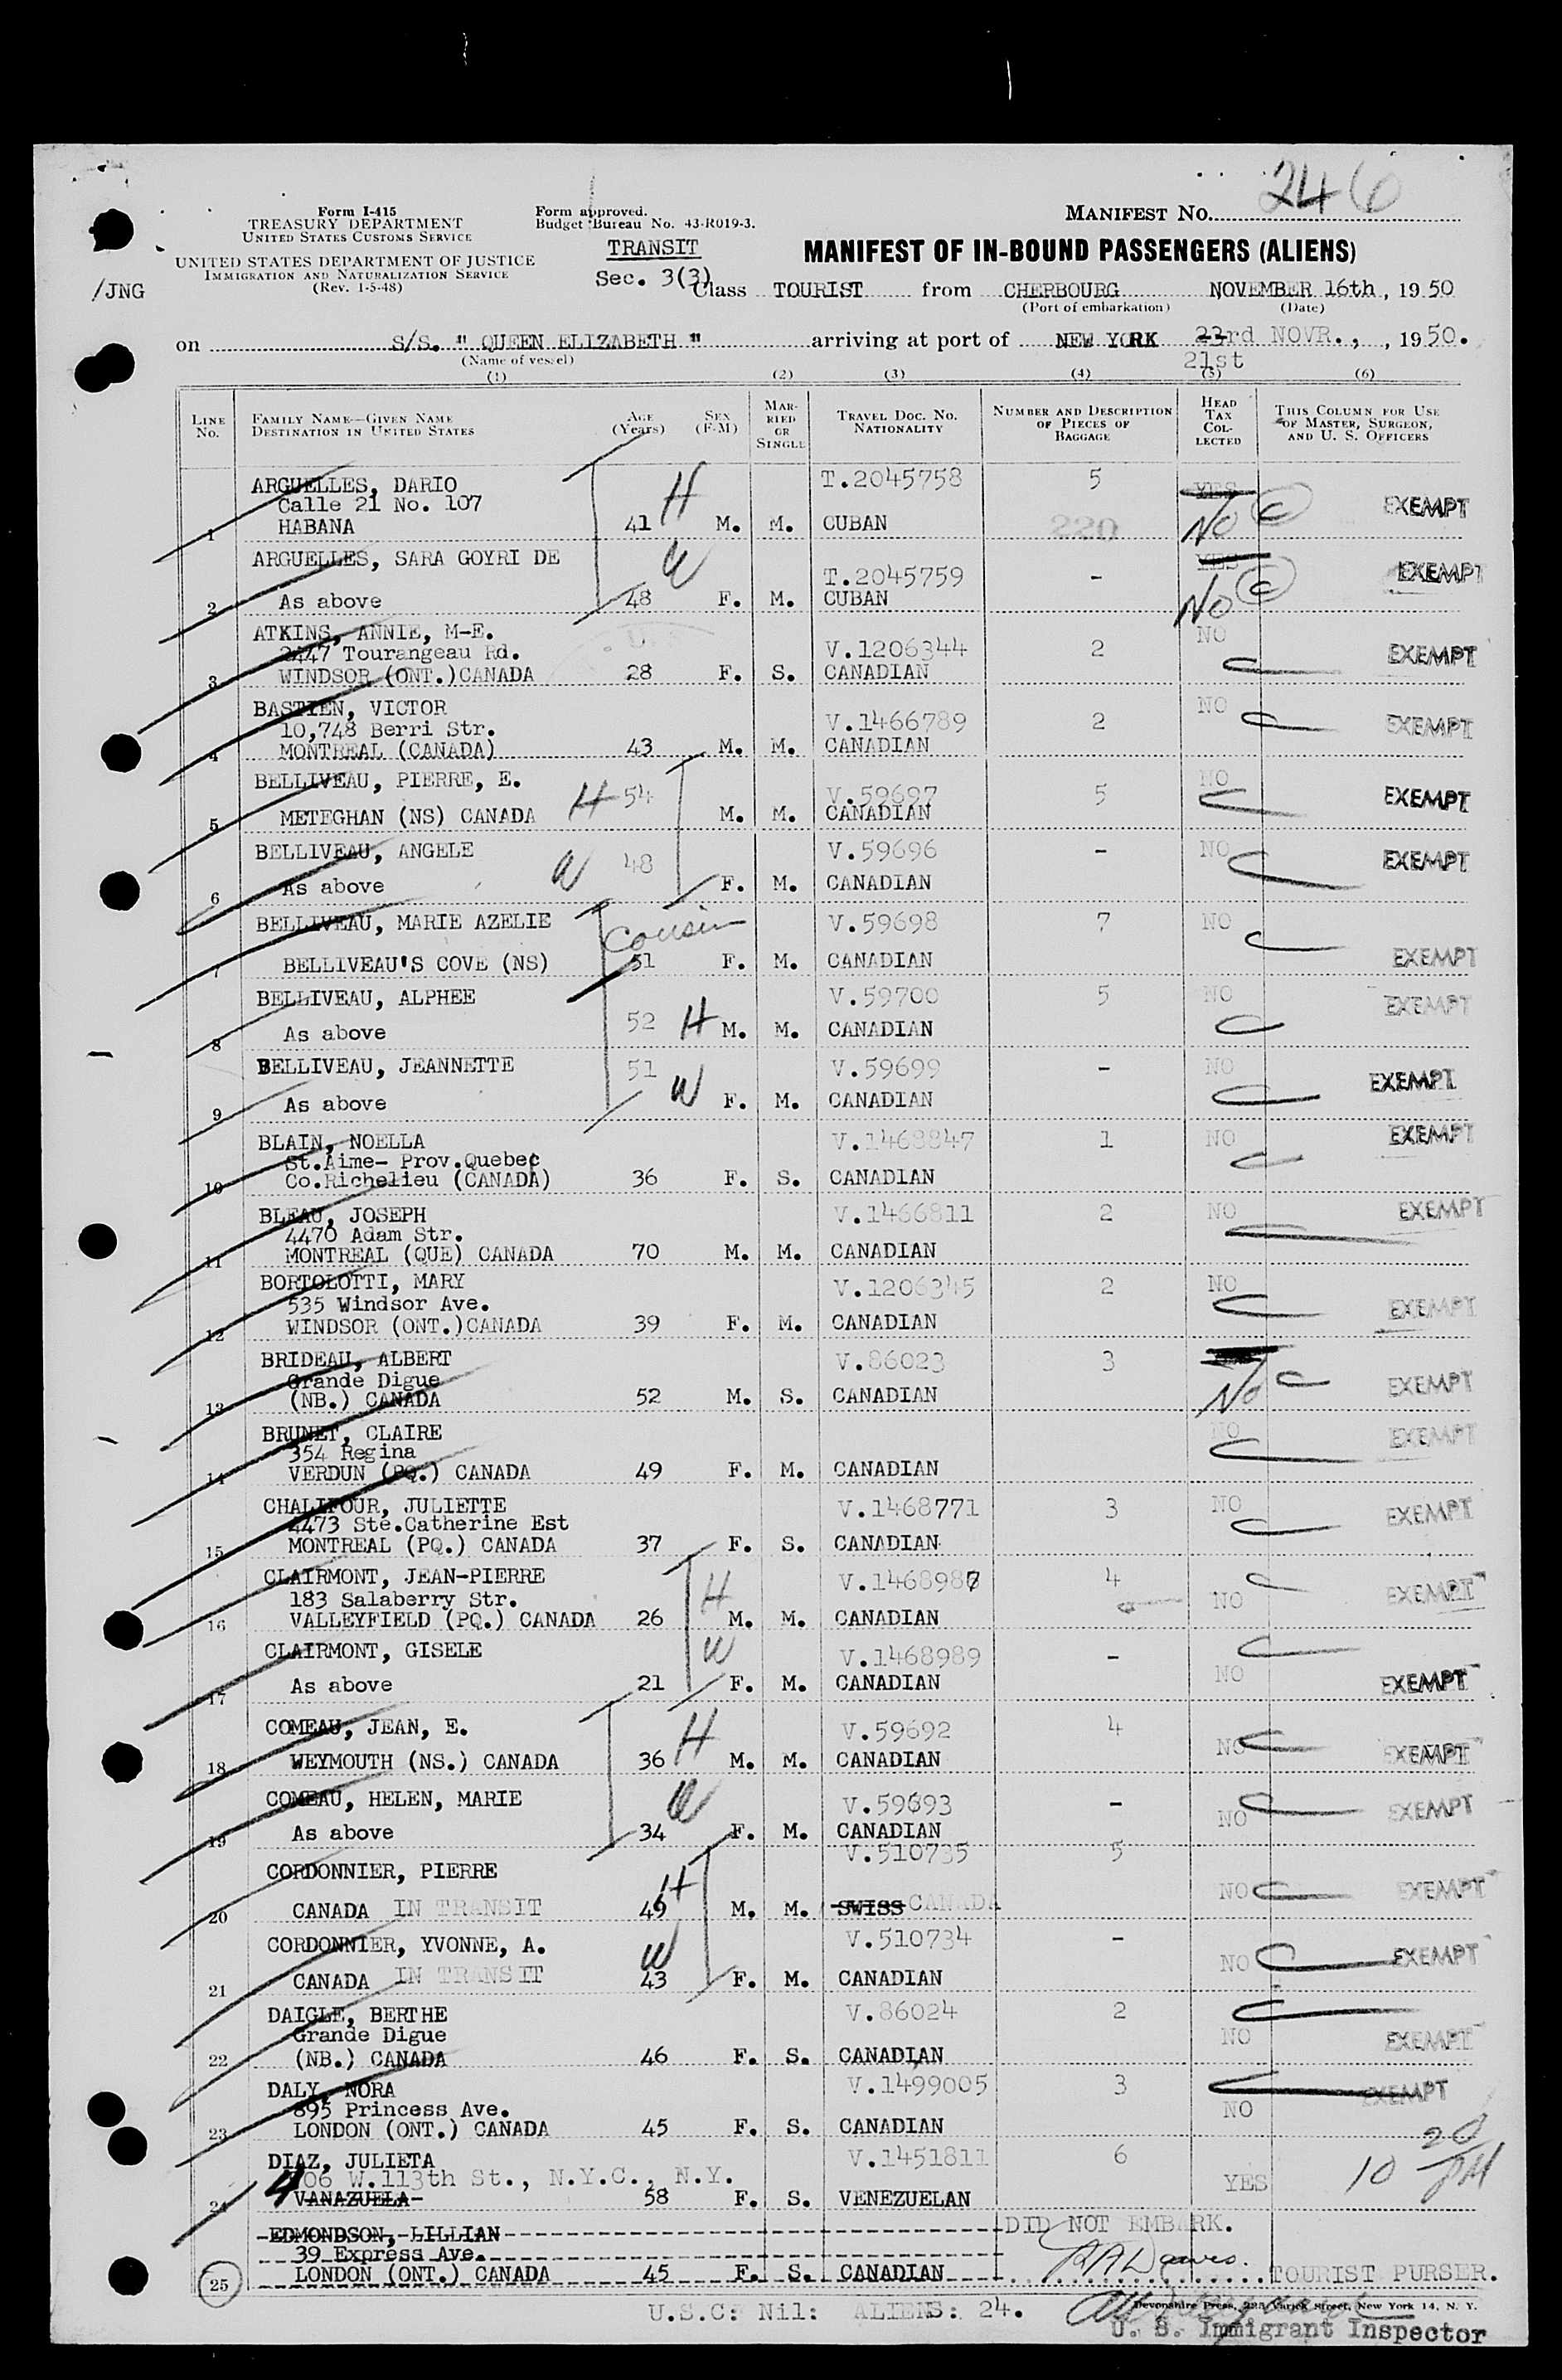 246
Form I-415
TREASURY DEPARTMENT
UNITED STATES CUSTOMS SERVICE
UNITED STATES DEPARTMENT OF JUSTICE
IMMIGRATION AND NATURALIZATION SERVICE
(Rev. 1-5-48)
/JNG
Form approved.
Budget Bureau No. 43-R019-3.
TRANSIT
Sec. 3(3)
MANIFEST NO.
MANIFEST OF IN-BOUND PASSENGERS (ALIENS)
Class TOURIST from CHERBOURG NOVEMBER 16th, 1950
(Port of embarkation) (Date)
on S/S. " QUEEN ELIZABETH " arriving at port of NEW YORK 23rd NOVR., , 1950.
21st
(Name of vessel)
(1) (2) (3) (4) (5) (6)
LINE No. FAMILY NAME—GIVEN NAME DESTINATION IN UNITED STATES AGE (Years) SEX (F-M) MARRIED OR SINGLE TRAVEL DOC. NO. NATIONALITY NUMBER AND DESCRIPTION OF PIECES OF BAGGAGE HEAD TAX COLLECTED THIS COLUMN FOR USE OF MASTER, SURGEON, AND U. S. OFFICERS
ARGUELLES, DARIO H T.2045758 5 YES
Calle 21 No. 107 No C EXEMPT
1 HABANA 41 M. M. CUBAN 220
ARGUELLES, SARA GOYRI DE W T.2045759 - YES EXEMPT
2 As above 48 F. M. CUBAN No C
ATKINS, ANNIE, M-E. V.1206344 2 NO
2447 Tourangeau Rd. EXEMPT
3 WINDSOR (ONT.)CANADA 28 F. S. CANADIAN
BASTIEN, VICTOR V.1466789 2 NO
10,748 Berri Str. EXEMPT
4 MONTREAL (CANADA) 43 M. M. CANADIAN
BELLIVEAU, PIERRE, E. H 54 V.59697 5 NO EXEMPT
5 METEGHAN (NS) CANADA M. M. CANADIAN
BELLIVEAU, ANGELE W 48 V.59696 - NO EXEMPT
6 As above F. M. CANADIAN
BELLIVEAU, MARIE AZELIE Cousin V.59698 7 NO
7 BELLIVEAU'S COVE (NS) 51 F. M. CANADIAN EXEMPT
BELLIVEAU, ALPHEE V.59700 5 NO EXEMPT
8 As above 52 H M. M. CANADIAN
BELLIVEAU, JEANNETTE 51 V.59699 - NO EXEMPT
9 As above W F. M. CANADIAN
BLAIN, NOELLA V.1468847 1 NO EXEMPT
St.Aime- Prov.Quebec
10 Co.Richelieu (CANADA) 36 F. S. CANADIAN
BLEAU, JOSEPH V.1466811 2 NO EXEMPT
4470 Adam Str.
11 MONTREAL (QUE) CANADA 70 M. M. CANADIAN
BORTOLOTTI, MARY V.1206345 2 NO
535 Windsor Ave. EXEMPT
12 WINDSOR (ONT.)CANADA 39 F. M. CANADIAN
BRIDEAU, ALBERT V.86023 3
Grande Digue C EXEMPT
13 (NB.) CANADA 52 M. S. CANADIAN No
BRUNET, CLAIRE NO EXEMPT
354 Regina
14 VERDUN (PQ.) CANADA 49 F. M. CANADIAN
CHALIFOUR, JULIETTE V.1468771 3 NO EXEMPT
4473 Ste.Catherine Est
15 MONTREAL (PQ.) CANADA 37 F. S. CANADIAN
CLAIRMONT, JEAN-PIERRE H V.1468988 4
183 Salaberry Str. NO EXEMPT
16 VALLEYFIELD (PQ.) CANADA 26 M. M. CANADIAN
CLAIRMONT, GISELE W V.1468989 -
17 As above 21 F. M. CANADIAN NO EXEMPT
COMEAU, JEAN, E. H V.59692 4
18 WEYMOUTH (NS.) CANADA 36 M. M. CANADIAN NO EXEMPT
COMEAU, HELEN, MARIE W V.59693 - EXEMPT
19 As above 34 F. M. CANADIAN NO
CORDONNIER, PIERRE H V.510735 5
20 CANADA IN TRANSIT 49 M. M. SWISS CANADA NO EXEMPT
CORDONNIER, YVONNE, A. W V.510734 -
21 CANADA IN TRANSIT 43 F. M. CANADIAN NO EXEMPT
DAIGLE, BERTHE V.86024 2
Grande Digue NO EXEMPT
22 (NB.) CANADA 46 F. S. CANADIAN
DALY, NORA V.1499005 3 EXEMPT
895 Princess Ave. NO
23 LONDON (ONT.) CANADA 45 F. S. CANADIAN
DIAZ, JULIETA V.1451811 6 10 20 PM
406 W.113th St., N.Y.C., N.Y. YES
24 VANAZUELA- 58 F. S. VENEZUELAN
EDMONDSON, LILLIAN DID NOT EMBARK.
39 Express Ave.
25 LONDON (ONT.) CANADA 45 F. S. CANADIAN TOURIST PURSER.
U.S.C: Nil: ALIENS: 24.
Devonshire Press, Varick Street, New York 14, N. Y.
U. S. Immigrant Inspector